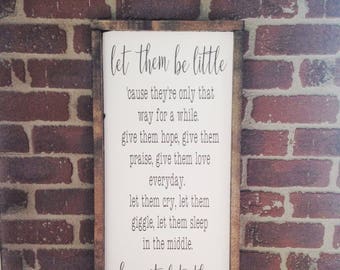 let them be little
'cause they're only that
way for a while.
give them hope, give them
praise, give them love
everyday.
let them cry, let them
giggle, let them sleep
in the middle.